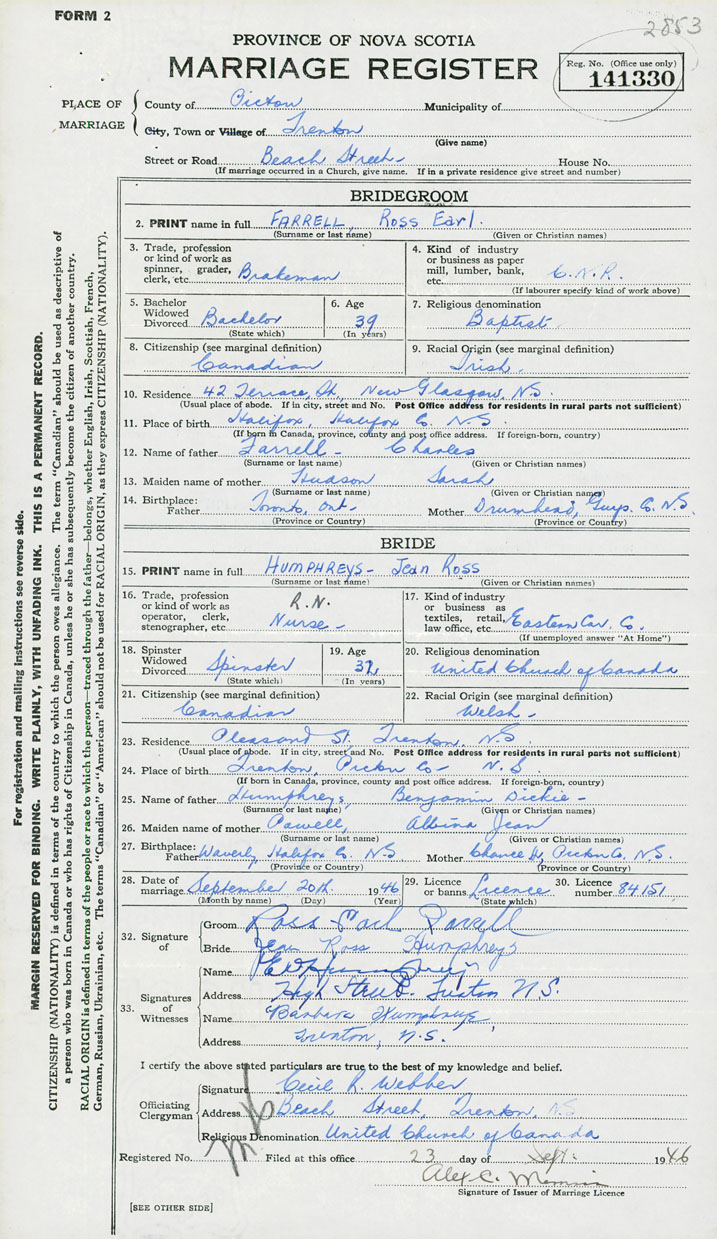 FORM 2
2853
PROVINCE OF NOVA SCOTIA
MARRIAGE REGISTER
Reg. No. (Office use only)
141330
PLACE OF MARRIAGE
County of Pictou Municipality of
City, Town or Village of Trenton
(Give name)
Street or Road Beach Street - House No.
(If marriage occurred in a Church, give name. If in a private residence give street and number)
BRIDEGROOM
2. PRINT name in full FARRELL, Ross Earl.
(Surname or last name) (Given or Christian names)
3. Trade, profession or kind of work as spinner, grader, clerk, etc. Brakeman
4. Kind of industry or business as paper mill, lumber, bank, etc. C.N.R.
(If labourer specify kind of work above)
5. Bachelor Widowed Divorced Bachelor
(State which)
6. Age 39
(In years)
7. Religious denomination
Baptist
8. Citizenship (see marginal definition)
Canadian
9. Racial Origin (see marginal definition)
Irish.
10. Residence 42 Terrace St, New Glasgow, N.S.
(Usual place of abode. If in city, street and No. Post Office address for residents in rural parts not sufficient)
11. Place of birth Halifax, Halifax Co. N.S.
(If born in Canada, province, county and post office address. If foreign-born, country)
12. Name of father Farrell - Charles
(Surname or last name) (Given or Christian names)
13. Maiden name of mother Hudson Sarah
(Surname or last name) (Given or Christian names)
14. Birthplace: Father Toronto, Ont- Mother Drumhead, Guys. Co. N.S.
(Province or Country) (Province or Country)
BRIDE
15. PRINT name in full HUMPHREYS - Jean Ross
(Surname or last name) (Given or Christian names)
16. Trade, profession or kind of work as operator, clerk, stenographer, etc. R.N. Nurse -
17. Kind of industry or business as textiles, retail, law office, etc. Eastern Car. Co.
(If unemployed answer "At Home")
18. Spinster Widowed Divorced Spinster
(State which)
19. Age
(In years)
20. Religious denomination
United Church of Canada
21. Citizenship (see marginal definition)
Canadian
22. Racial Origin (see marginal definition)
Welsh -
23. Residence Pleasant St. Trenton, N.S
(Usual place of abode. If in city, street and No. Post Office address for residents in rural parts not sufficient)
24. Place of birth Trenton, Pictou Co - N.S.
(If born in Canada, province, county and post office address. If foreign-born, country)
25. Name of father Humphreys, Benjamin Dickie -
(Surname or last name) (Given or Christian names)
26. Maiden name of mother Powell, Albina Jean
(Surname or last name) (Given or Christian names)
27. Birthplace: Father Waverly, Halifax Co. NS Mother Chance Hr, Pictou Co. N.S.
(Province or Country) (Province or Country)
28. Date of marriage September 20th 1946
(Month by name) (Day) (Year)
29. Licence or banns Licence
(State which)
30. Licence number 84151
32. Signature of
Groom Ross Earl Farrell
Bride Jean Ross Humphreys
33. Signatures of Witnesses
Name Humphreys
Address High Street. Trenton N.S.
Name Barbara Humphreys,
Address Trenton, N.S.
I certify the above stated particulars are true to the best of my knowledge and belief.
Officiating Clergyman
Signature Cecil R. Webber
Address Beach Street, Trenton, N.S
Religious Denomination United Church of Canada
Registered No. Filed at this office 23 day of Sept. 1946
Alex C.
Signature of Issuer of Marriage Licence
[SEE OTHER SIDE]
For registration and mailing instructions see reverse side.
MARGIN RESERVED FOR BINDING. WRITE PLAINLY, WITH UNFADING INK. THIS IS A PERMANENT RECORD.
CITIZENSHIP (NATIONALITY) is defined in terms of the country to which the person owes allegiance. The term "Canadian" should be used as descriptive of
a person who was born in Canada or who has rights of Citizenship in Canada, unless he or she has subsequently become the citizen of another country.
RACIAL ORIGIN is defined in terms of the people or race to which the person—traced through the father—belongs, whether English, Irish, Scottish, French,
German, Russian, Ukrainian, etc. The terms "Canadian" or "American" should not be used for RACIAL ORIGIN, as they express CITIZENSHIP (NATIONALITY).